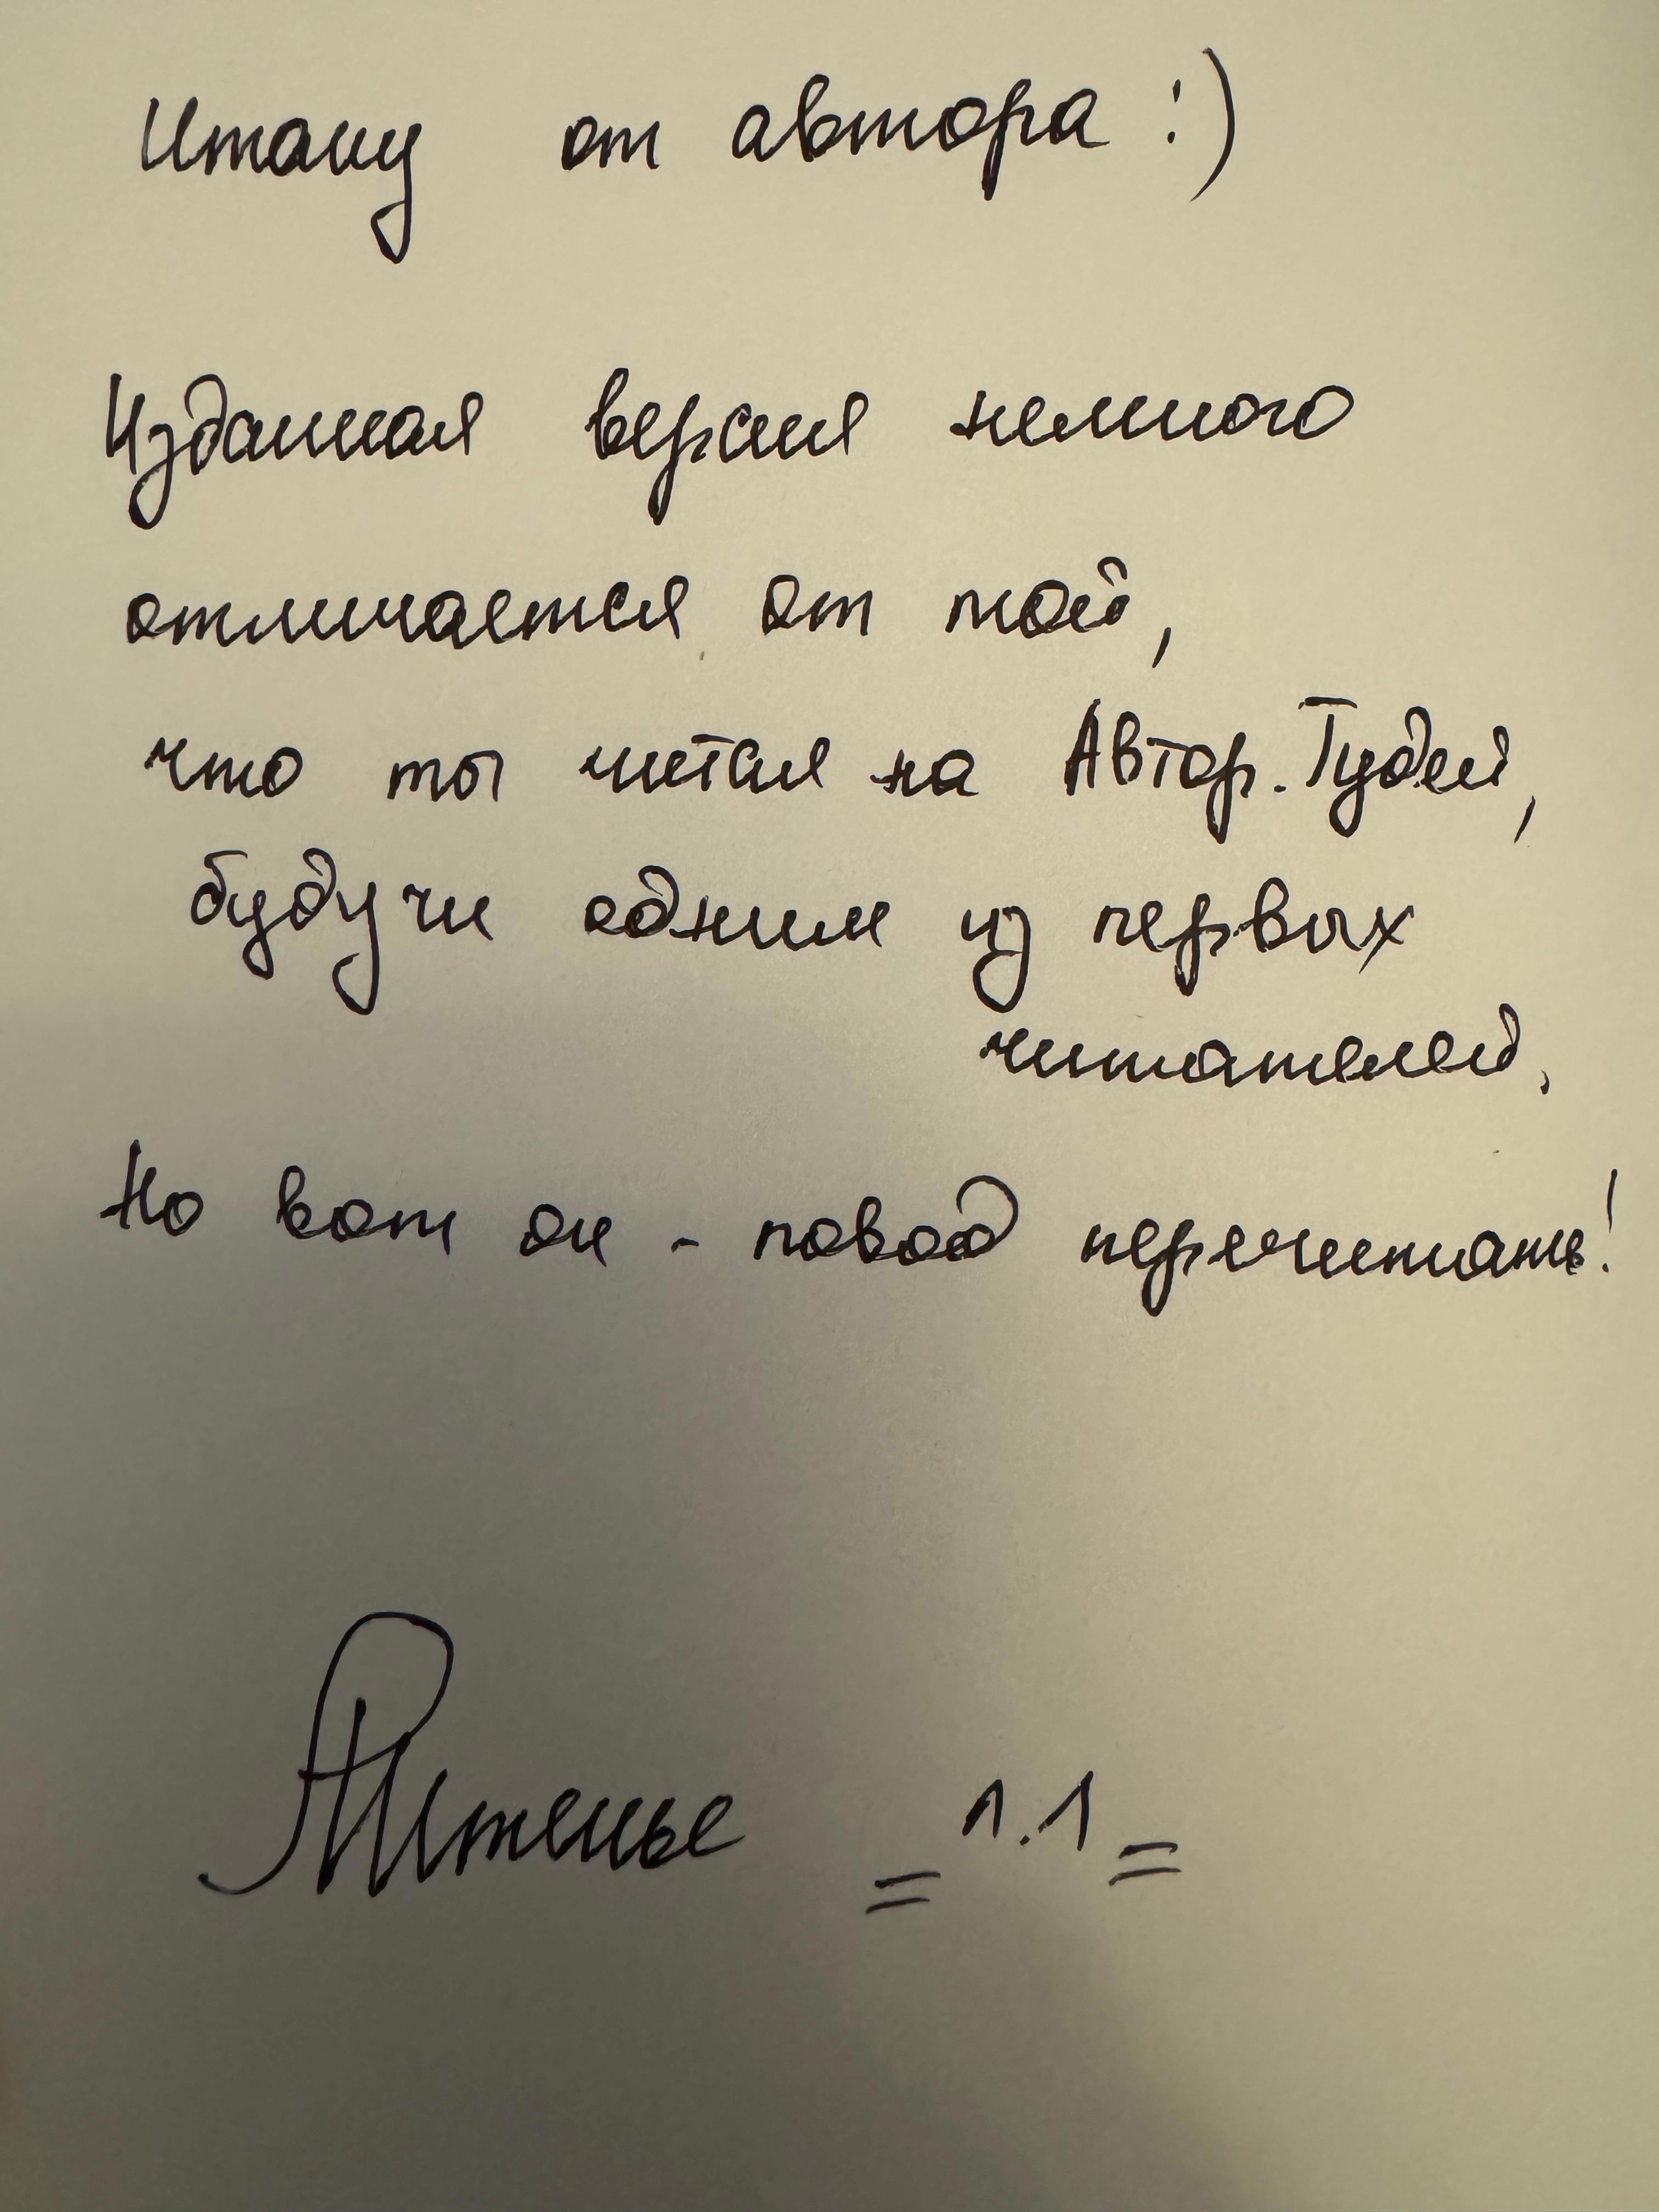 Итану от автора :)
Изданная версия немного
отличается от той,
что ты читал на Автор.Тудей,
будучи одним из первых
читателей.
Но вот он - повод перечитать!
= 1.1 =